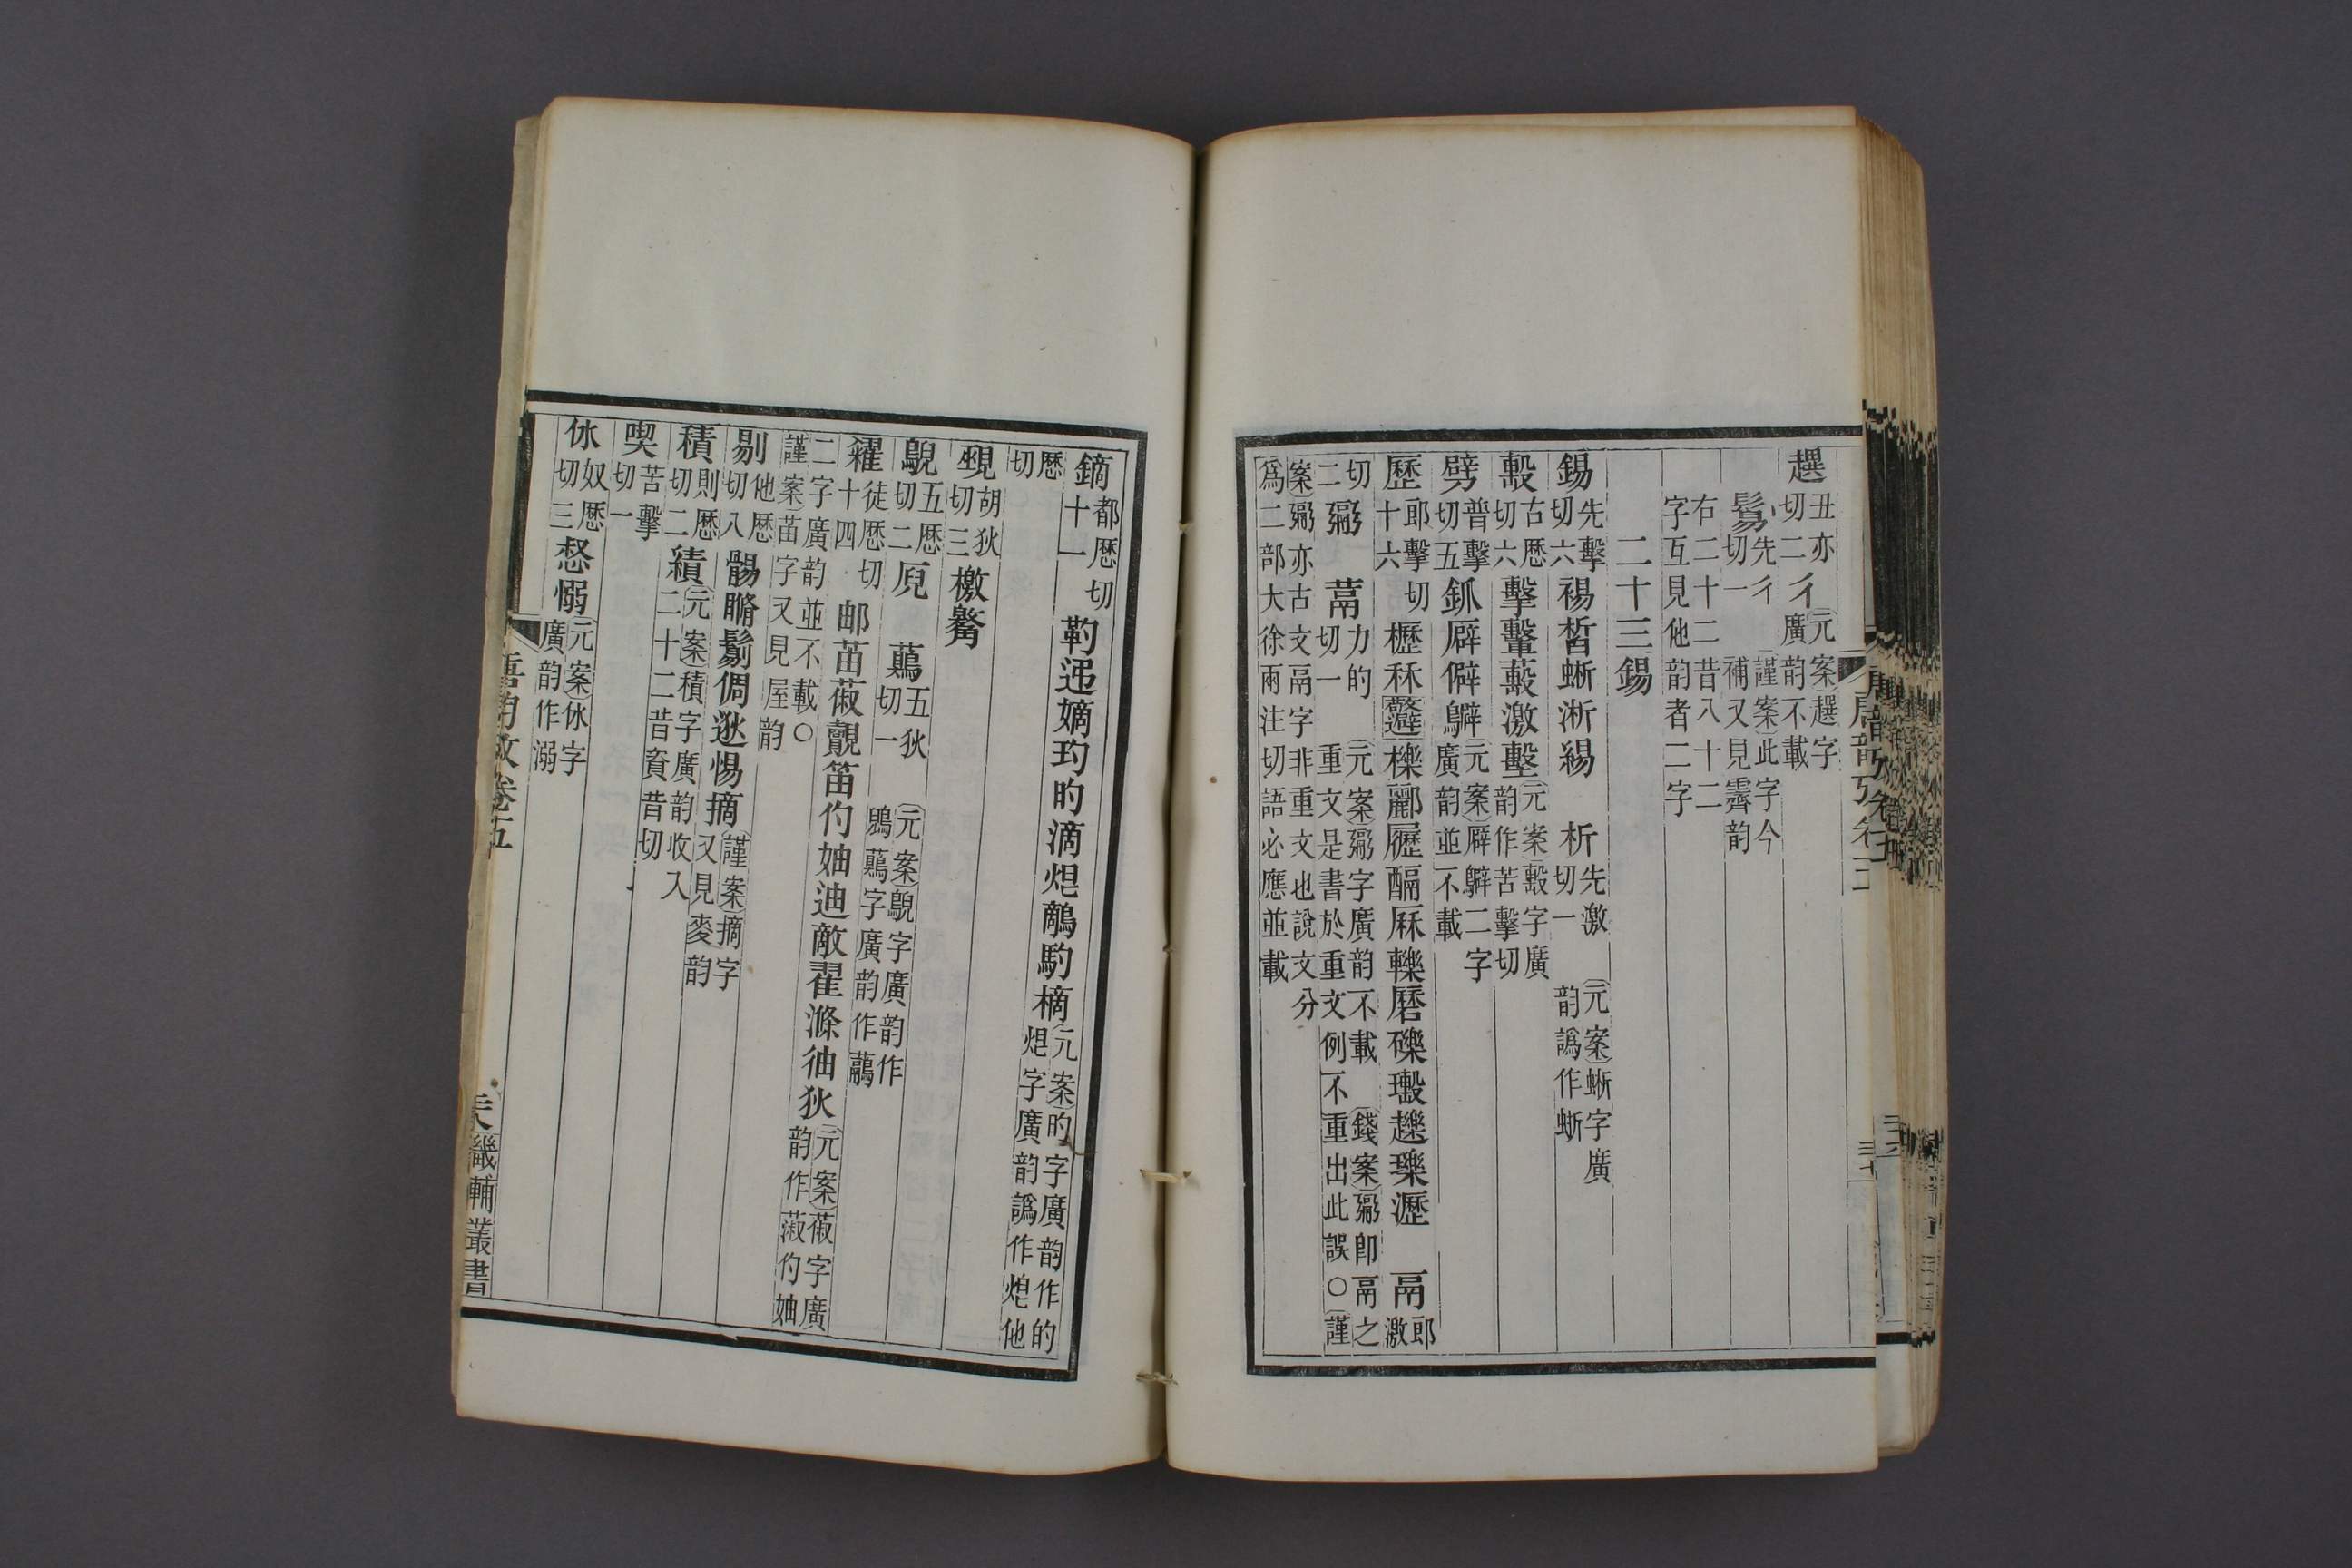 趩丑亦切二彳元案趩字廣韵不載
鬄先彳切一謹案此字今補又見霽韵
右二十二昔八十二字互見他韵者二字
二十三錫
錫先擊切六裼晳蜥淅緆析先激切一元案蜥字廣韵譌作蜤
毄古歷切六擊鼜藙激墼元案毄字廣韵作苦擊切
劈普擊切五釽㕓僻鸊元案㕓鸊二字廣韵並不載
歷郎擊切十六櫪秝櫟酈㱹䤙厤轢磿礫瓅瀝鬲郎激
切二䰜䓪力的切一元案䰜字廣韵不載重文是書於重文例不重出此誤○錢案䰜卽鬲之謹
案䰜亦古文鬲字非重文也說文分爲二部大徐兩注切語必應並載
鏑都歷切十一靮迡嫡玓旳滴炟鷸馰樀元案旳字廣韵作的炟字廣韵譌作炟他
歷切
覡胡狄切三檄
鶃五歷切二㕒鷊五狄切一元案鶃字廣韵作鷁鷊字廣韵作虉
糴徒歷切十四邮苖蔋覿笛仢妯迪敵翟滌㣙狄元案蔋字廣韵作䔎仢妯
二字廣韵並不載○謹案苖字又見屋韵
剔他歷切八䯜𦞦鬄倜逖惕摘謹案摘字又見麥韵
積則歷切二績元案積字廣韵收入二十二昔資昔切
喫苦擊切一
㲻奴歷切三惄愵元案㲻字廣韵作溺
唐韵攷卷五
畿輔叢書